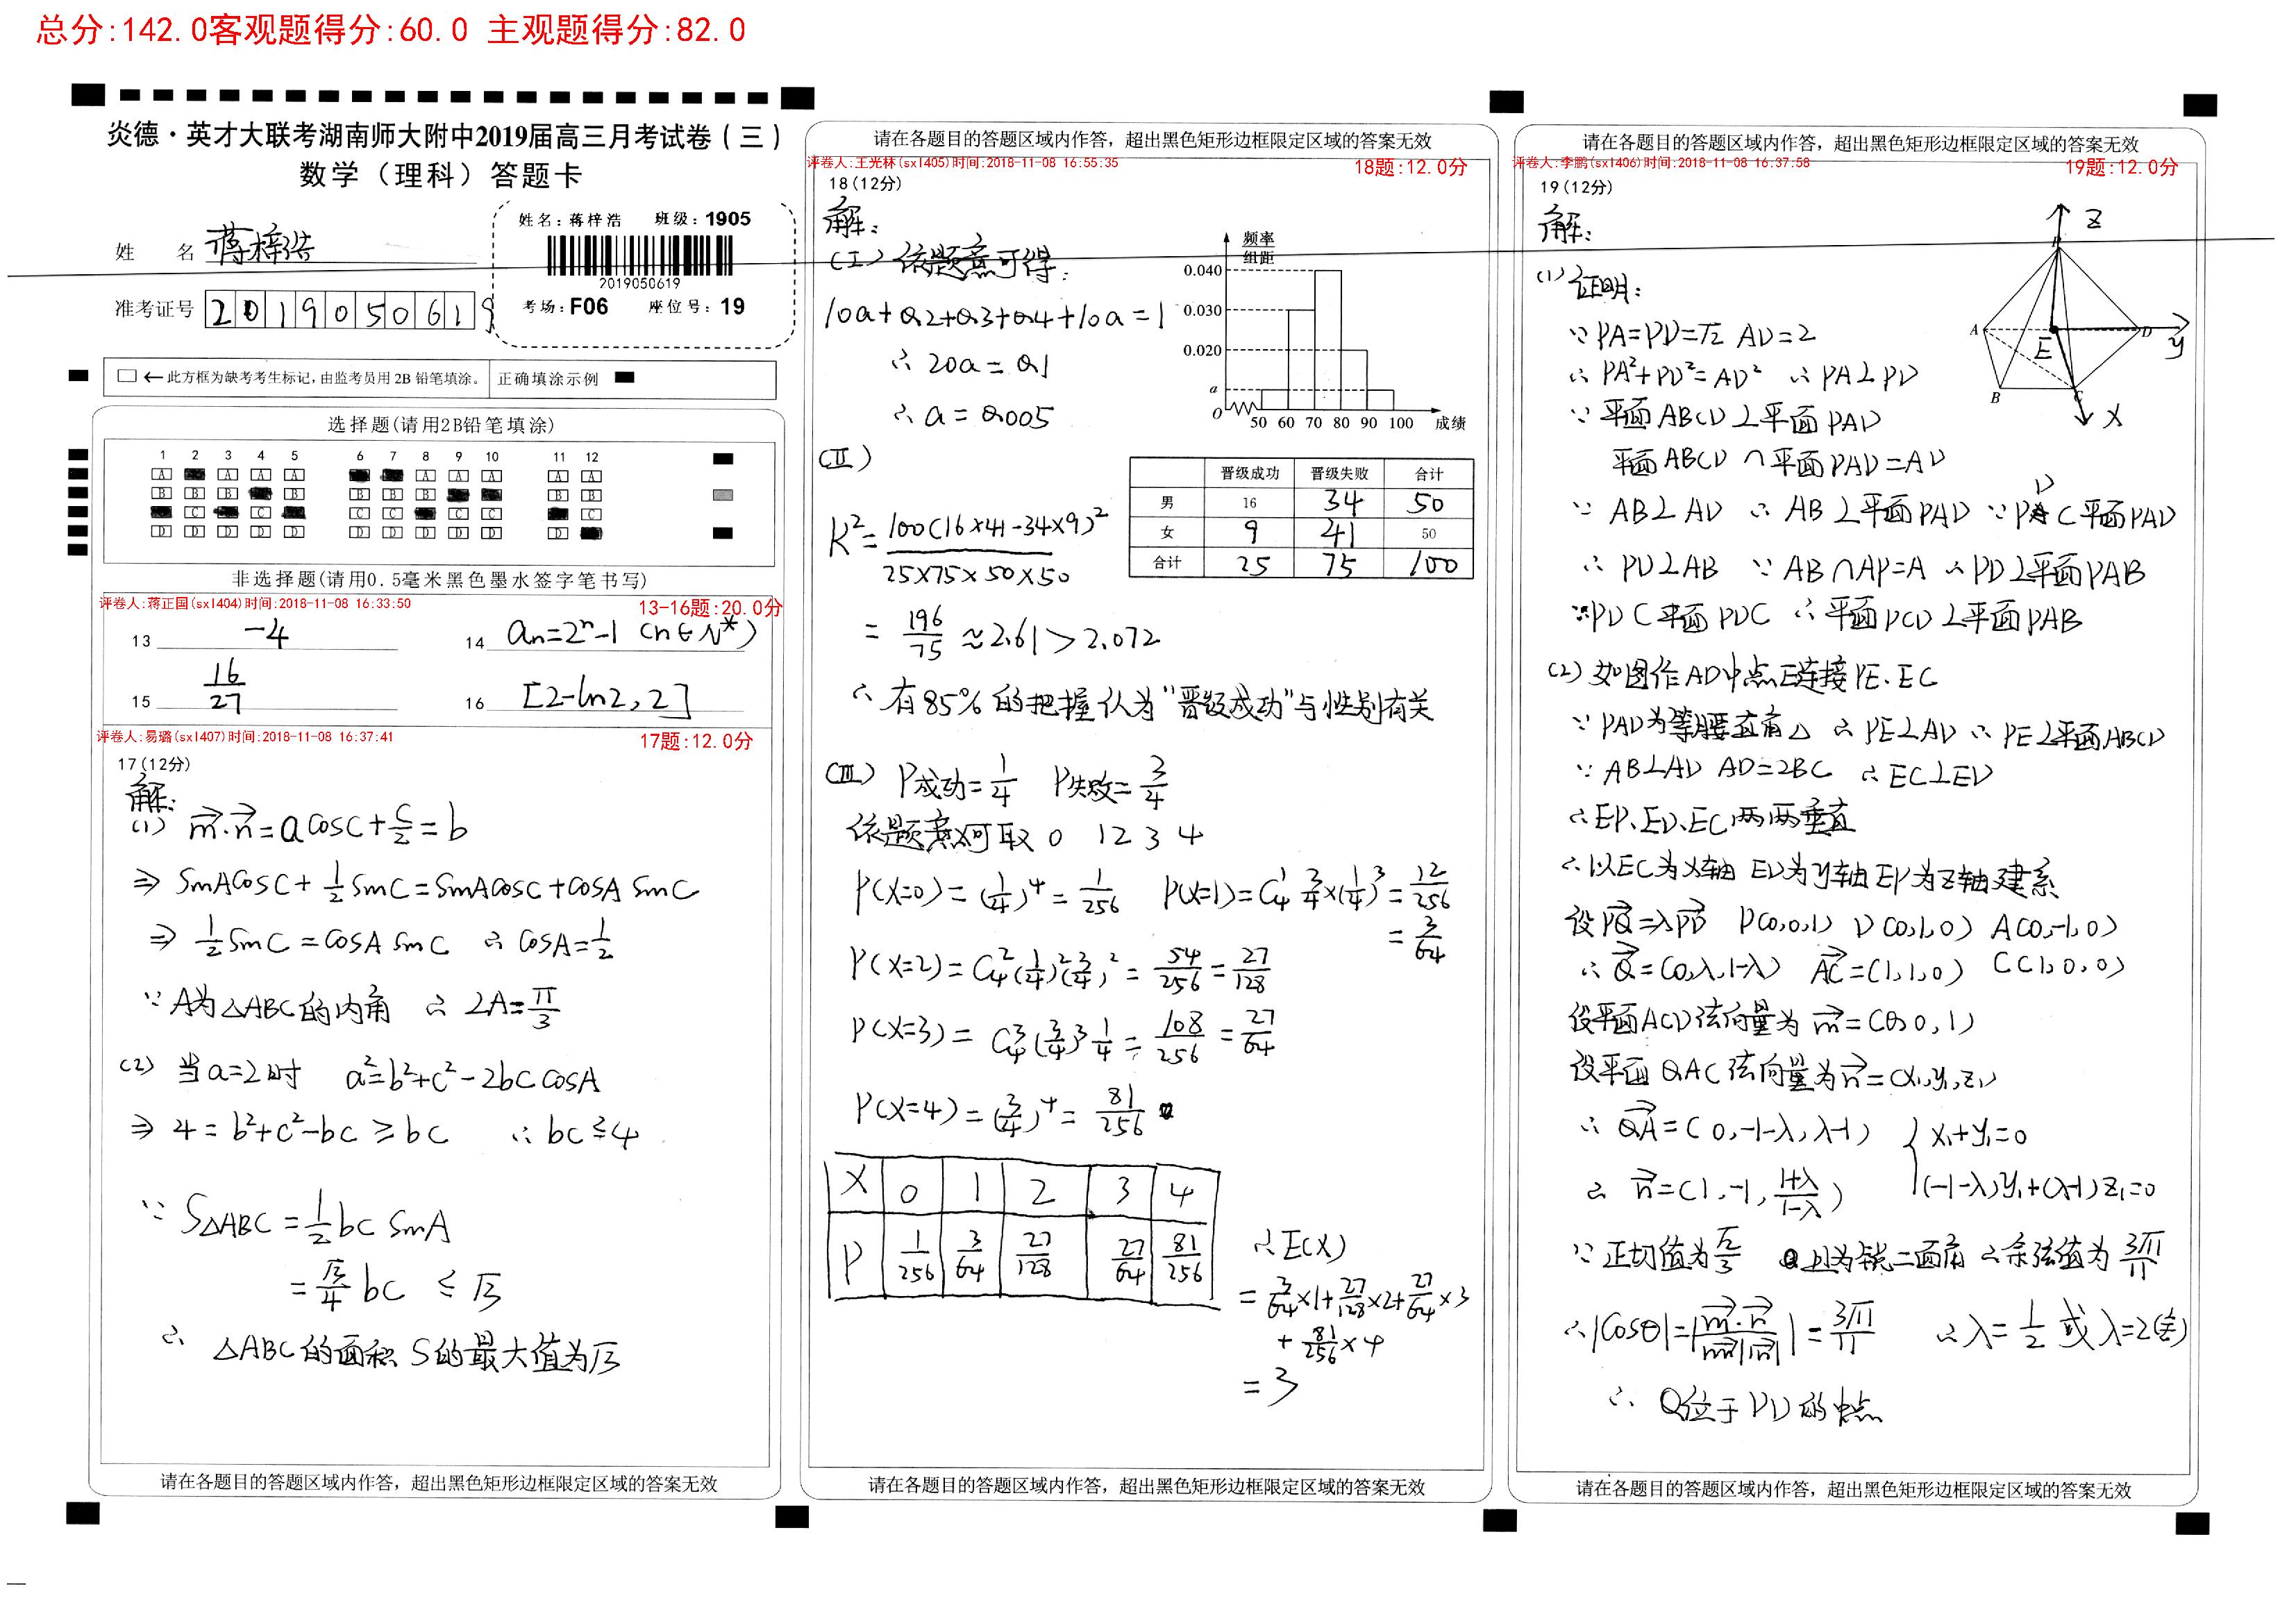 总分:142.0客观题得分:60.0 主观题得分:82.0
炎德·英才大联考湖南师大附中2019届高三月考试卷(三)
数学(理科)答题卡
姓名 蒋梓浩
准考证号 2019050619
姓名:蒋梓浩 班级:1905
2019050619
考场:F06 座位号:19
←此方框为缺考考生标记,由监考员用2B铅笔填涂。 正确填涂示例
选择题(请用2B铅笔填涂)
1 2 3 4 5 6 7 8 9 10 11 12
非选择题(请用0.5毫米黑色墨水签字笔书写)
评卷人:蒋正国(sxl404)时间:2018-11-08 16:33:50 13-16题:20.0分
13 -4 14 an=2ⁿ-1 (n∈N*)
15 16/27 16 [2-ln2,2]
评卷人:易璐(sxl407)时间:2018-11-08 16:37:41 17题:12.0分
17(12分)
解:
(1) m·n=acosC+c/2=b
⇒ sinAcosC+1/2sinC=sinAcosC+cosAsinC
⇒ 1/2sinC=cosAsinC ∴cosA=1/2
∵A为△ABC的内角 ∴∠A=π/3
(2) 当a=2时 a²=b²+c²-2bccosA
⇒ 4=b²+c²-bc≥bc ∴bc≤4
∵ S△ABC=1/2bcsinA
=√3/4bc ≤√3
∴ △ABC的面积S的最大值为√3
请在各题目的答题区域内作答,超出黑色矩形边框限定区域的答案无效
请在各题目的答题区域内作答,超出黑色矩形边框限定区域的答案无效
评卷人:王光林(sxl405)时间:2018-11-08 16:55:35 18题:12.0分
18(12分)
解:
(I)依题意可得:
10a+0.2+0.3+0.4+10a=1
∴20a=0.1
∴a=0.005
频率
组距
0.040
0.030
0.020
a
O 50 60 70 80 90 100 成绩
(II)
晋级成功 晋级失败 合计
男 16 34 50
女 9 41 50
合计 25 75 100
K²=100(16×41-34×9)²/25×75×50×50
=196/75≈2.61>2.072
∴有85%的把握认为"晋级成功"与性别有关
(III) P成功=1/4 P失败=3/4
依题意X可取0 1 2 3 4
P(X=0)=(1/4)⁴=1/256 P(X=1)=C₄¹ 3/4×(1/4)³=12/256
=3/64
P(X=2)=C₄²(1/4)²(3/4)²=54/256=27/128
P(X=3)=C₄³(3/4)³1/4=108/256=27/64
P(X=4)=(3/4)⁴=81/256
X 0 1 2 3 4
P 1/256 3/64 27/128 27/64 81/256
∴E(X)
=3/64×1+27/128×2+27/64×3
+81/256×4
=3
请在各题目的答题区域内作答,超出黑色矩形边框限定区域的答案无效
请在各题目的答题区域内作答,超出黑色矩形边框限定区域的答案无效
评卷人:李鹏(sxl406)时间:2018-11-08 16:37:58 19题:12.0分
19(12分)
解:
P Z A D y E B C X
(1)证明:
∵PA=PD=√2 AD=2
∴PA²+PD²=AD² ∴PA⊥PD
∵平面ABCD⊥平面PAD
平面ABCD∩平面PAD=AD
∵AB⊥AD ∴AB⊥平面PAD ∵PD⊂平面PAD
∴PD⊥AB ∵AB∩AP=A ∴PD⊥平面PAB
∵PD⊂平面PDC ∴平面PCD⊥平面PAB
(2)如图作AD中点E连接PE、EC
∵PAD为等腰直角△ ∴PE⊥AD ∴PE⊥平面ABCD
∵AB⊥AD AD=2BC ∴EC⊥ED
∴EP、ED、EC两两垂直
∴以EC为X轴 ED为y轴 EP为Z轴建系
设PQ=λPD P(0,0,1) D(0,1,0) A(0,-1,0)
∴Q=(0,λ,1-λ) AC=(1,1,0) C(1,0,0)
设平面ACD法向量为m=(0,0,1)
设平面QAC法向量为n=(x₁,y₁,z₁)
∴QA=(0,-1-λ,λ-1) {x₁+y₁=0
∴n=(1,-1,1+λ/1-λ) (-1-λ)y₁+(λ-1)z₁=0
∵正切值为√2/3 且为锐二面角∴余弦值为3√11/11
∴|cosθ|=|m·n/|m||n||=3√11/11 ∴λ=1/2或λ=2(舍)
∴Q位于PD的中点
请在各题目的答题区域内作答,超出黑色矩形边框限定区域的答案无效